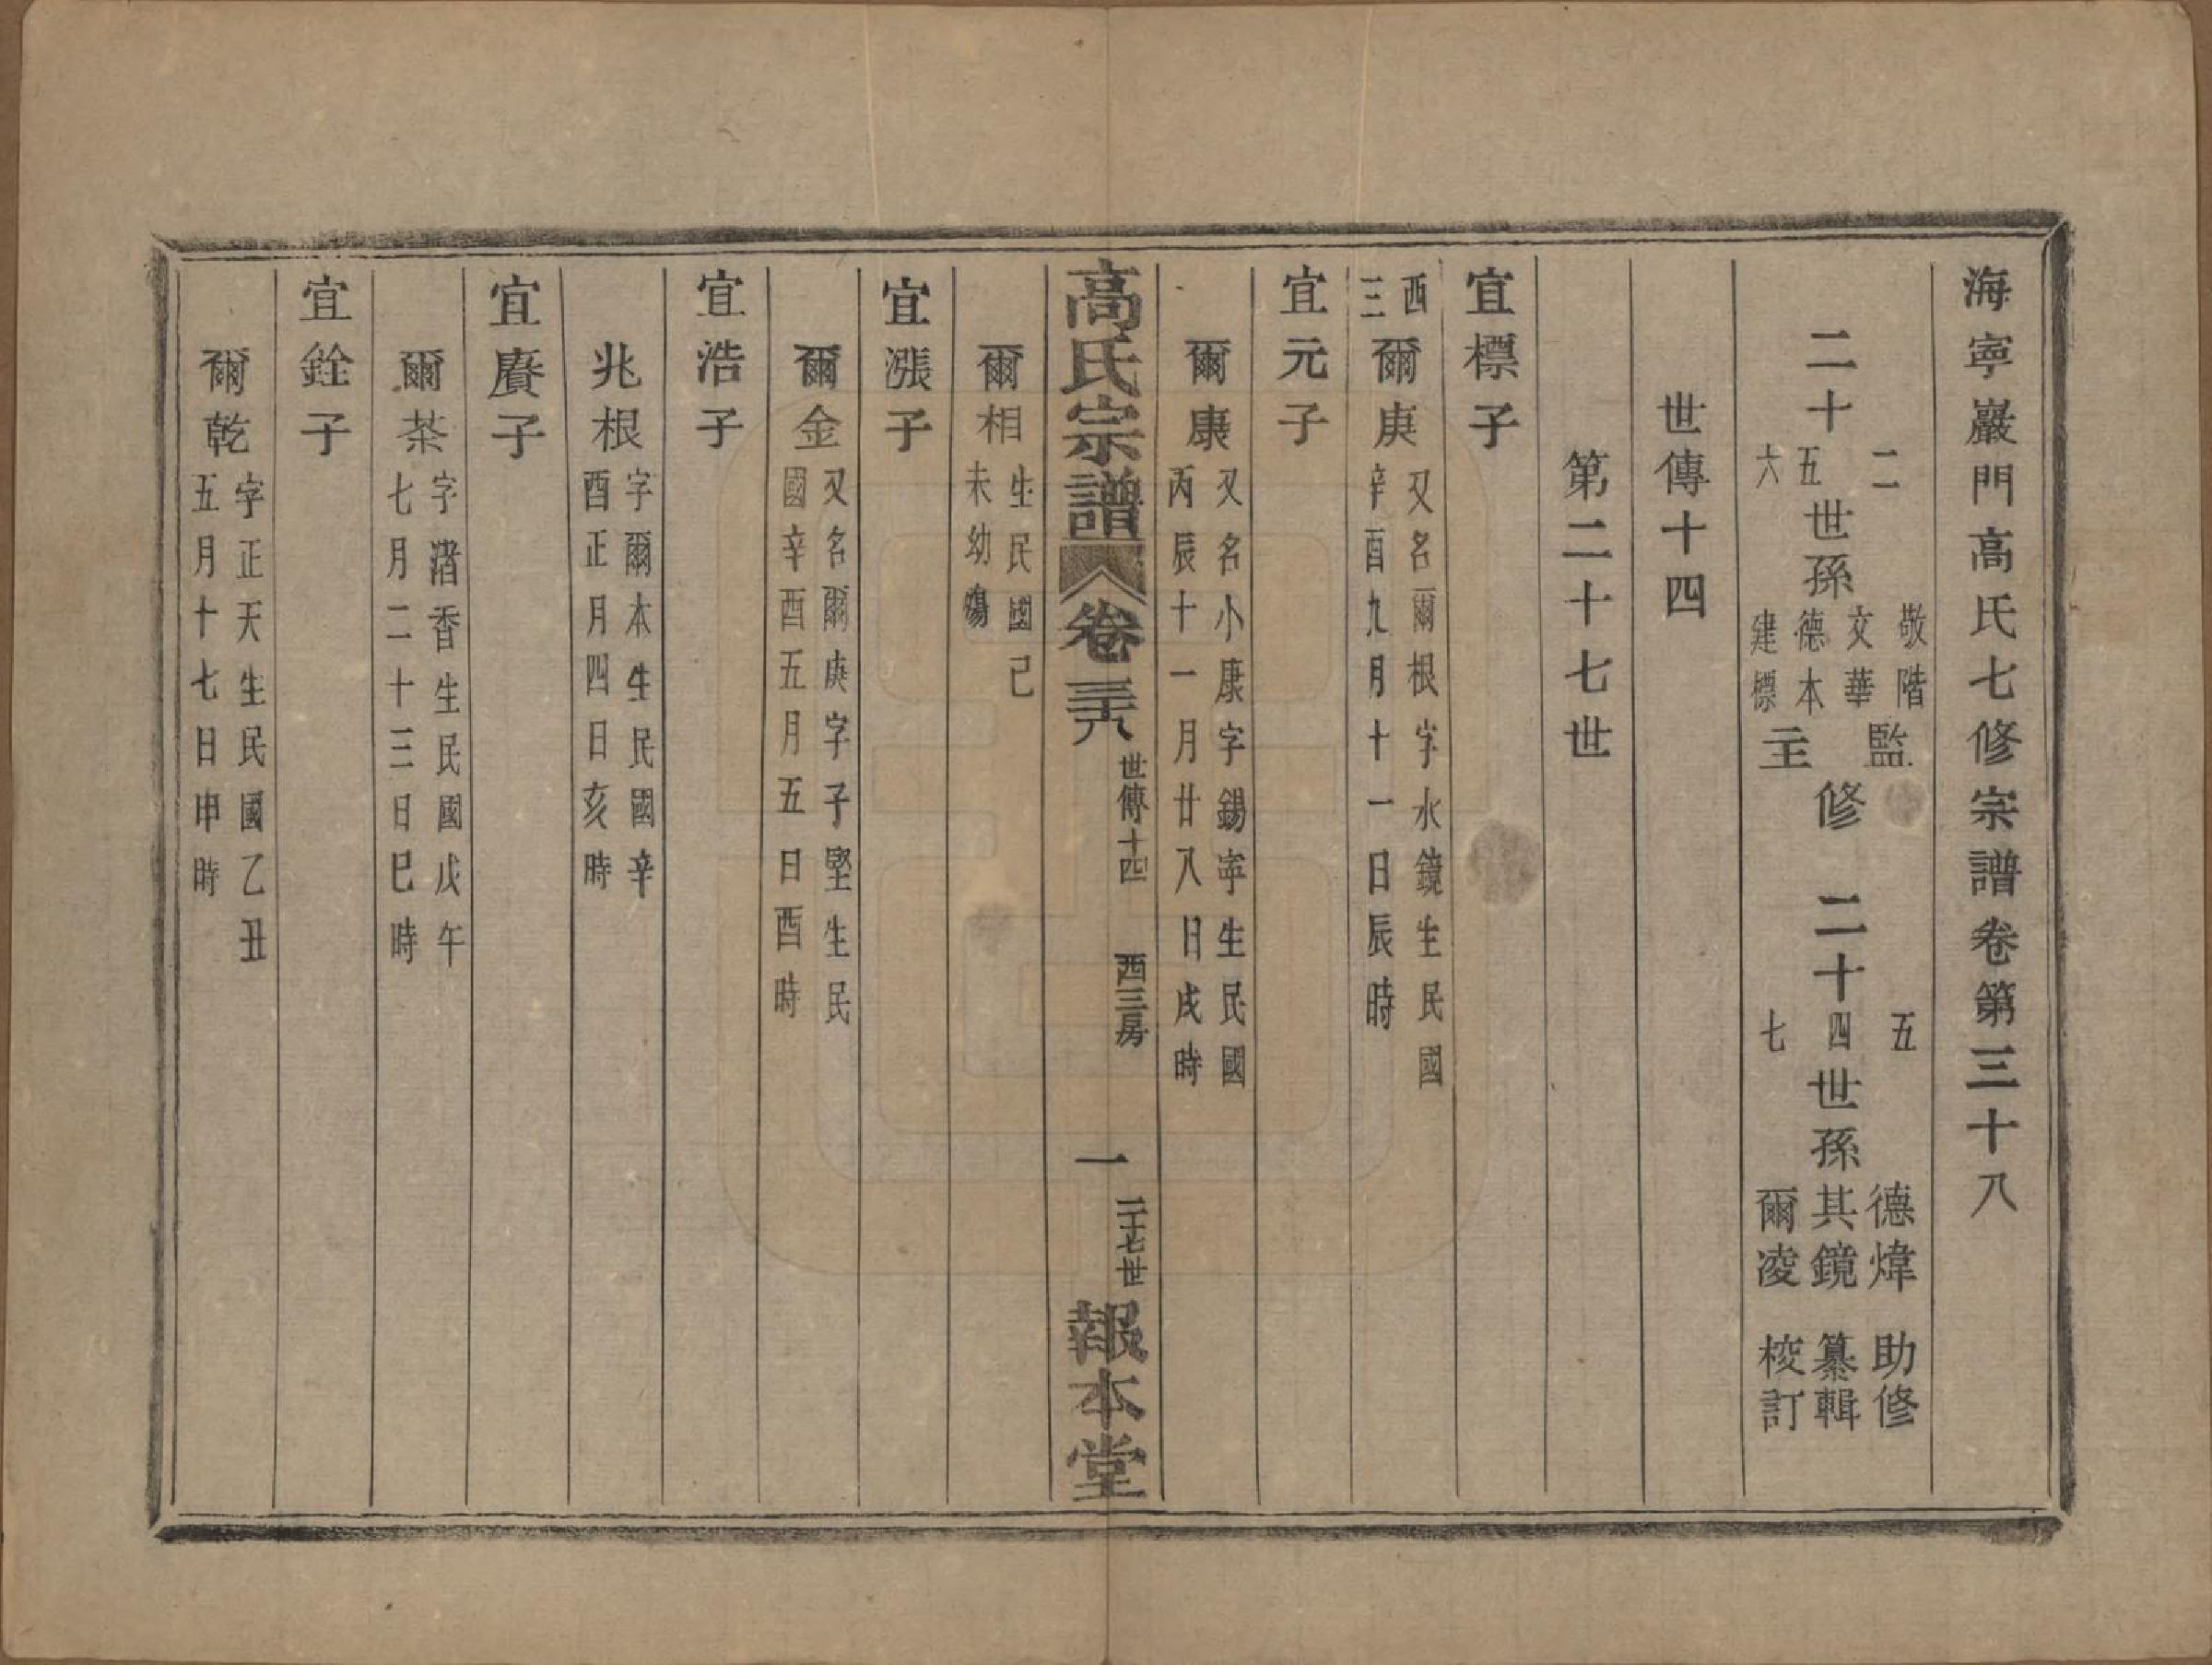 海寧巖門高氏七修宗譜卷第三十八
二十二五六世孫敬階文華德本建標監主修 二十五四七世孫德煒其鏡爾凌助修纂輯校訂
世傳十四
第二十七世
宜標子
西三爾庚又名爾根字水鏡生民國
辛酉九月十一日辰時
宜元子
爾康又名小康字錫寧生民國
丙辰十一月廿八日戌時
高氏宗譜 卷三十八 世傳十四 西三房 一 二十七世 報本堂
爾相生民國己
未幼殤
宜漲子
爾金又名爾庚字子堅生民
國辛酉五月五日酉時
宜浩子
兆根字爾本生民國辛
酉正月四日亥時
宜賡子
爾茶字渚香生民國戊午
七月二十三日巳時
宜銓子
爾乾字正天生民國乙丑
五月十七日申時